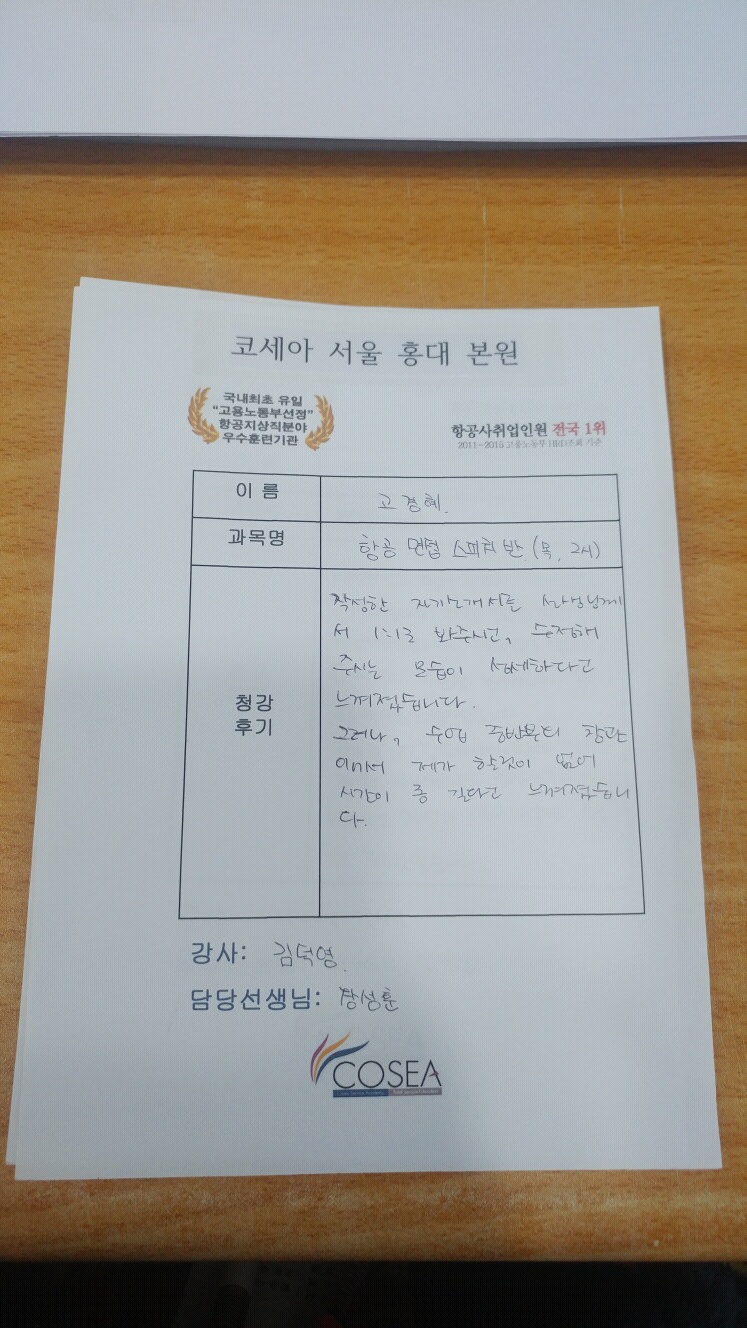 코세아 서울 홍대 본원
국내최초 유일
"고용노동부선정"
항공지상직분야
우수훈련기관
항공사취업인원 전국 1위
2011~2015 고용노동부 HRD조회 기준
이 름
고경혜.
과목명
항공 면접 스피치 반. (목, 2시)
청강
후기
작성한 자기소개서를 선생님께
서 1:1로 봐주시고, 수정해
주시는 모습이 섬세하다고
느껴졌습니다.
그러나, 수업 중반부터 참관
이여서 제가 할것이 없어
시간이 좀 길다고 느껴졌습니
다.
강사: 김덕영.
담당선생님: 장성훈
COSEA